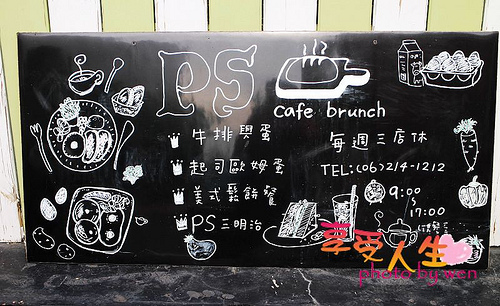 PS
cafe brunch
牛排與蛋
每週三店休
起司歐姆蛋
TEL:(06)214-1212
美式鬆餅餐
9:00
~
17:00
PS三明治
享受人生
photo by wen